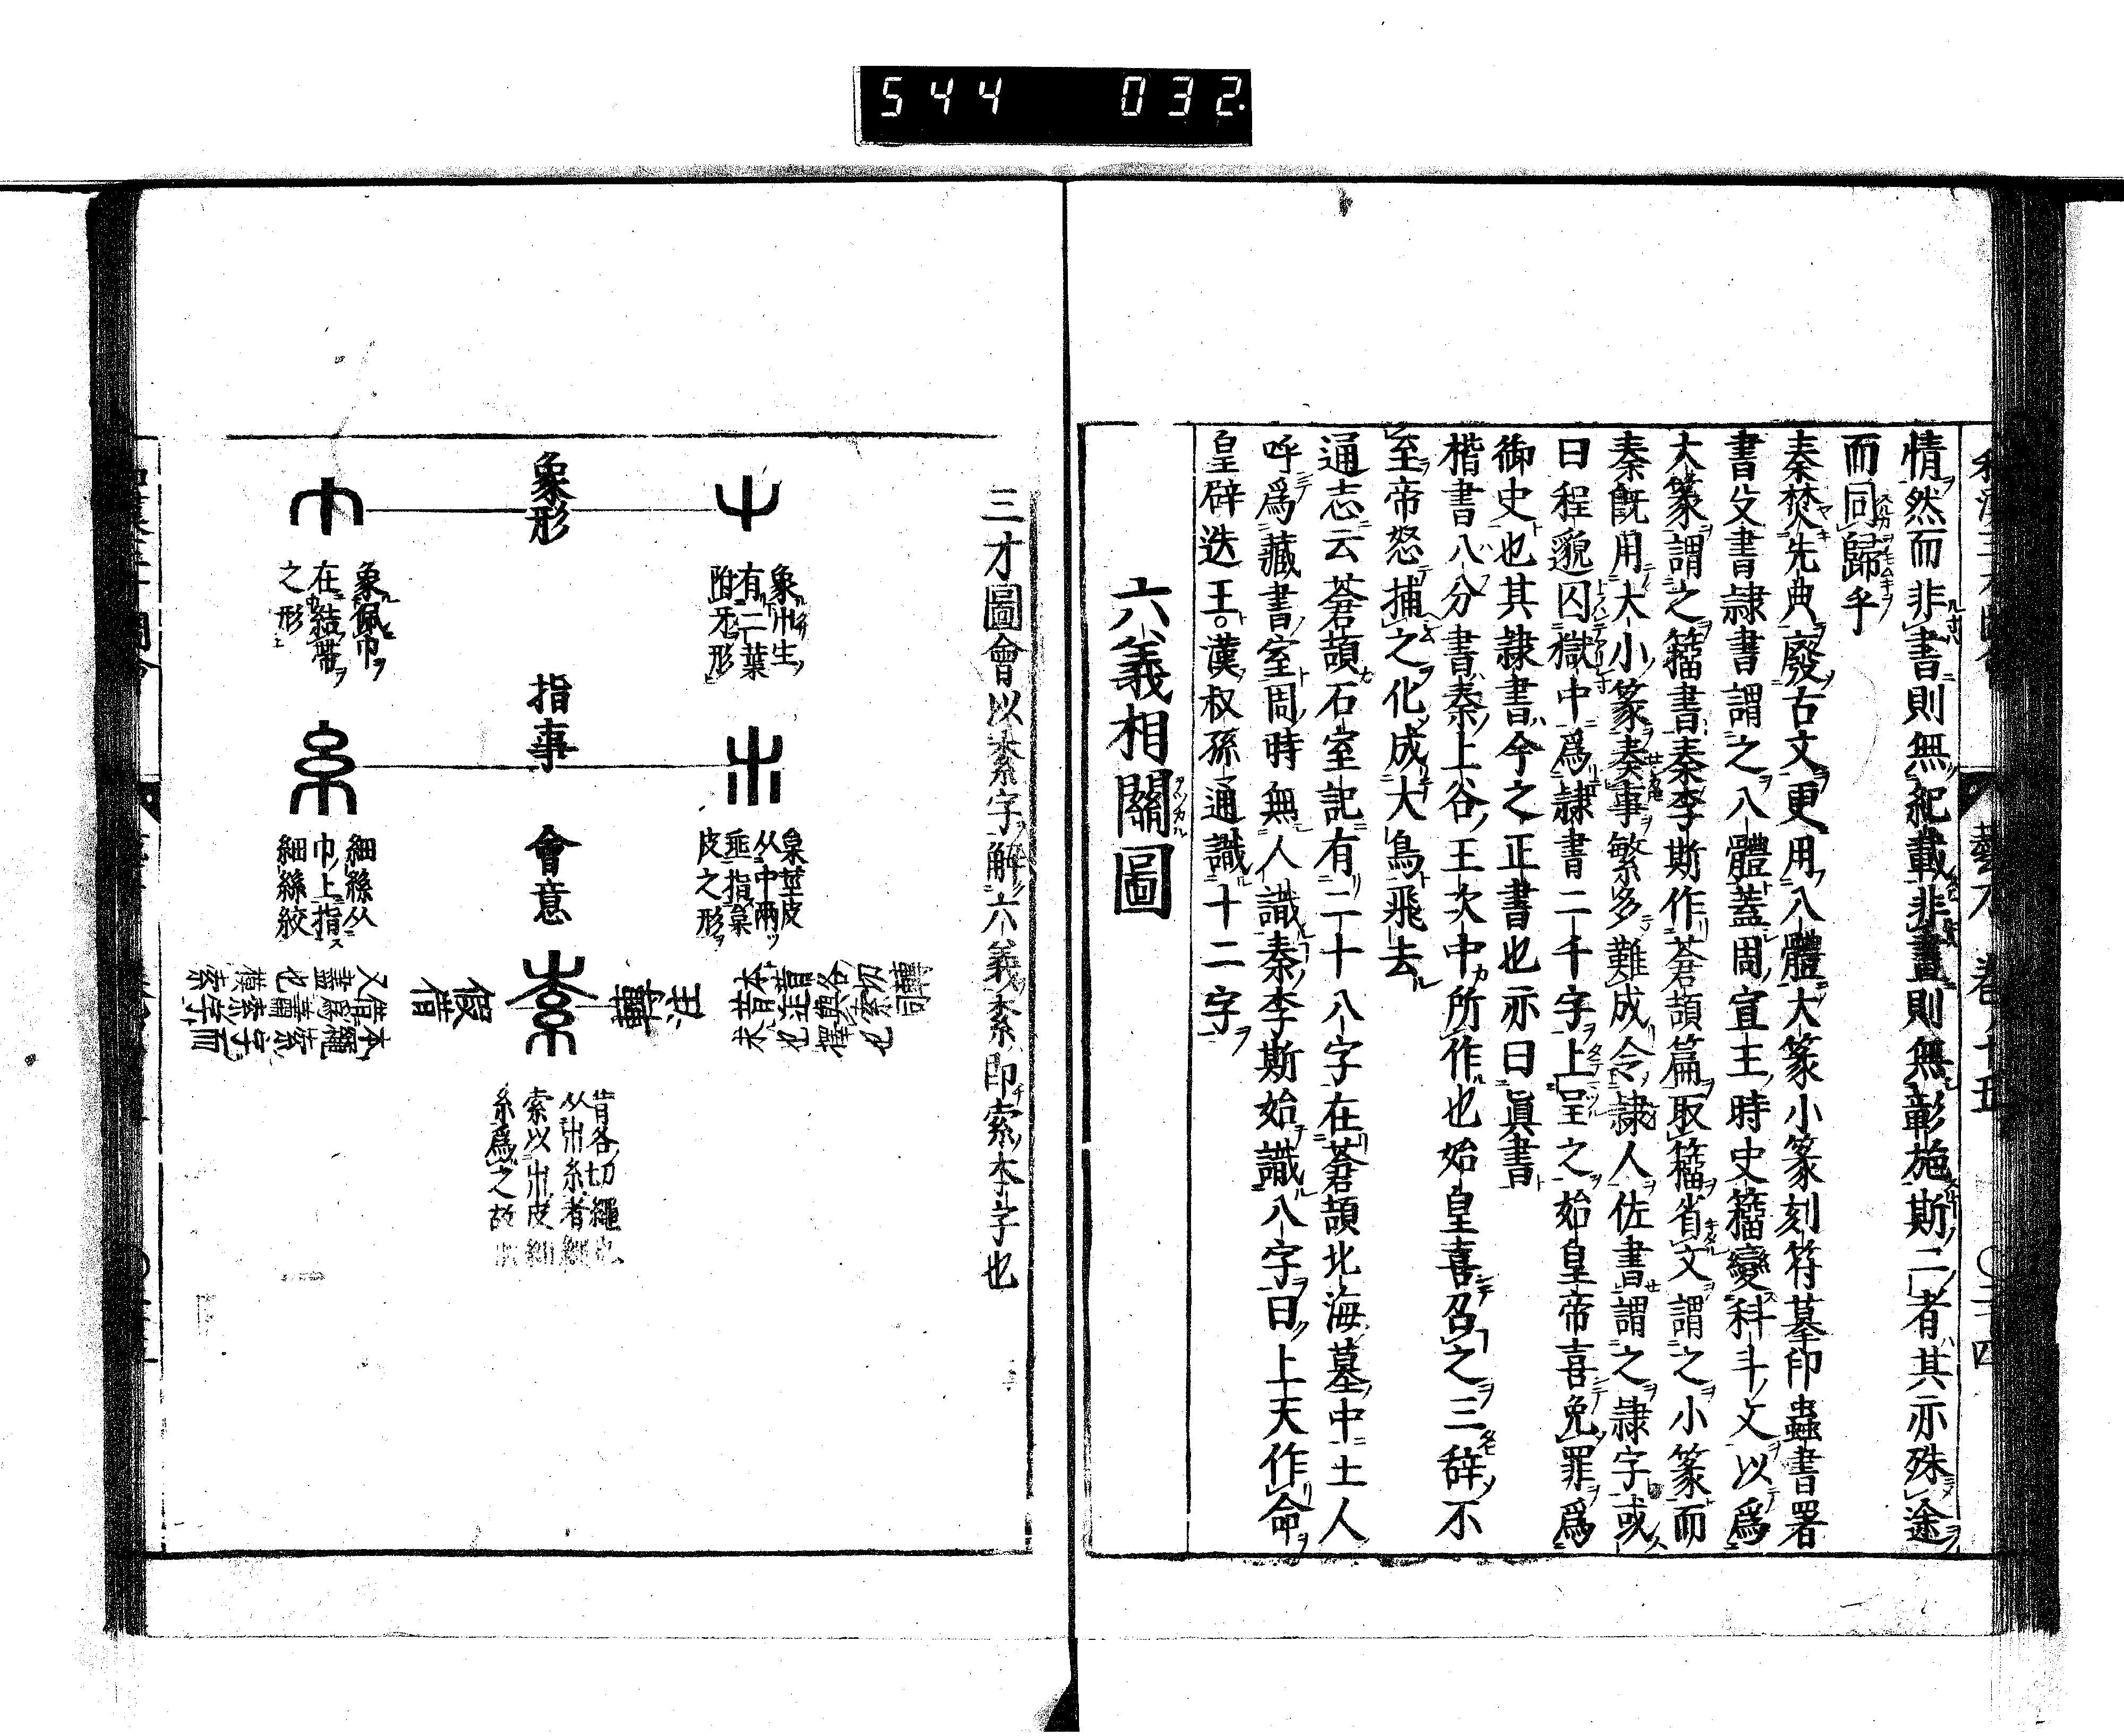 544 032
情然而非書則無紀載非畫則無彰施斯二者其亦殊途
而同歸乎
秦焚先典廢古文更用八體大篆小篆刻符墓印蟲書署
書殳書隷書謂之八體蓋周宣王時史籀變科斗文以爲
大篆謂之籀書秦李斯作蒼頡篇取籀省文謂之小篆而
秦旣用大小篆奏事繁多難成令隷人佐書謂之隷字或
曰程邈囚獄中爲隷書二千字上呈之始皇帝喜免罪爲
御史也其隷書今之正書也亦曰眞書
楷書八分書秦上谷王次中所作也始皇喜召之三辞不
至帝怒捕之化成大鳥飛去
通志云蒼頡石室記有二十八字在蒼頡北海墓中土人
呼爲藏書室周時無人識秦李斯始識八字曰上天作命
皇辟迭王漢叔孫通識十二字
六義相關圖
三才圖會以素字解六義素即索本字也
象形
象𣎳生
有二葉
附牙形
象佩巾
在結帶
之形
指事
枲莖皮
从屮兩
垂指枲
皮之形
細絲从
巾上指
細絲絞
會意
昔各切繩也
从𣎳糸者
索以𣎳皮
糸爲之故
轉注
假借
本昔
昔各切
也索也
又借